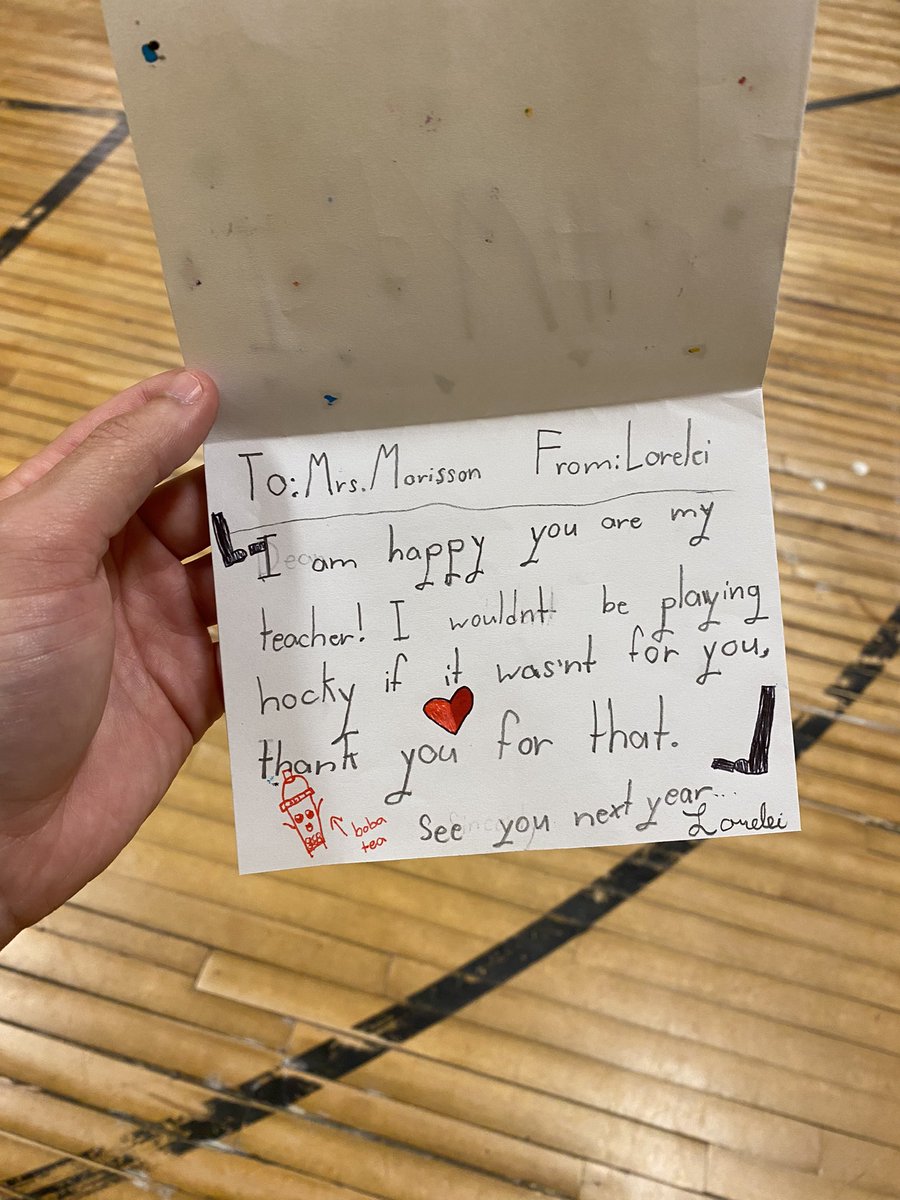 To: Mrs. Morisson From: Lorelei
I am happy you are my
teacher! I wouldnt be playing
hocky if it was'nt for you,
thank you for that.
boba
tea
See you next year...
Lorelei